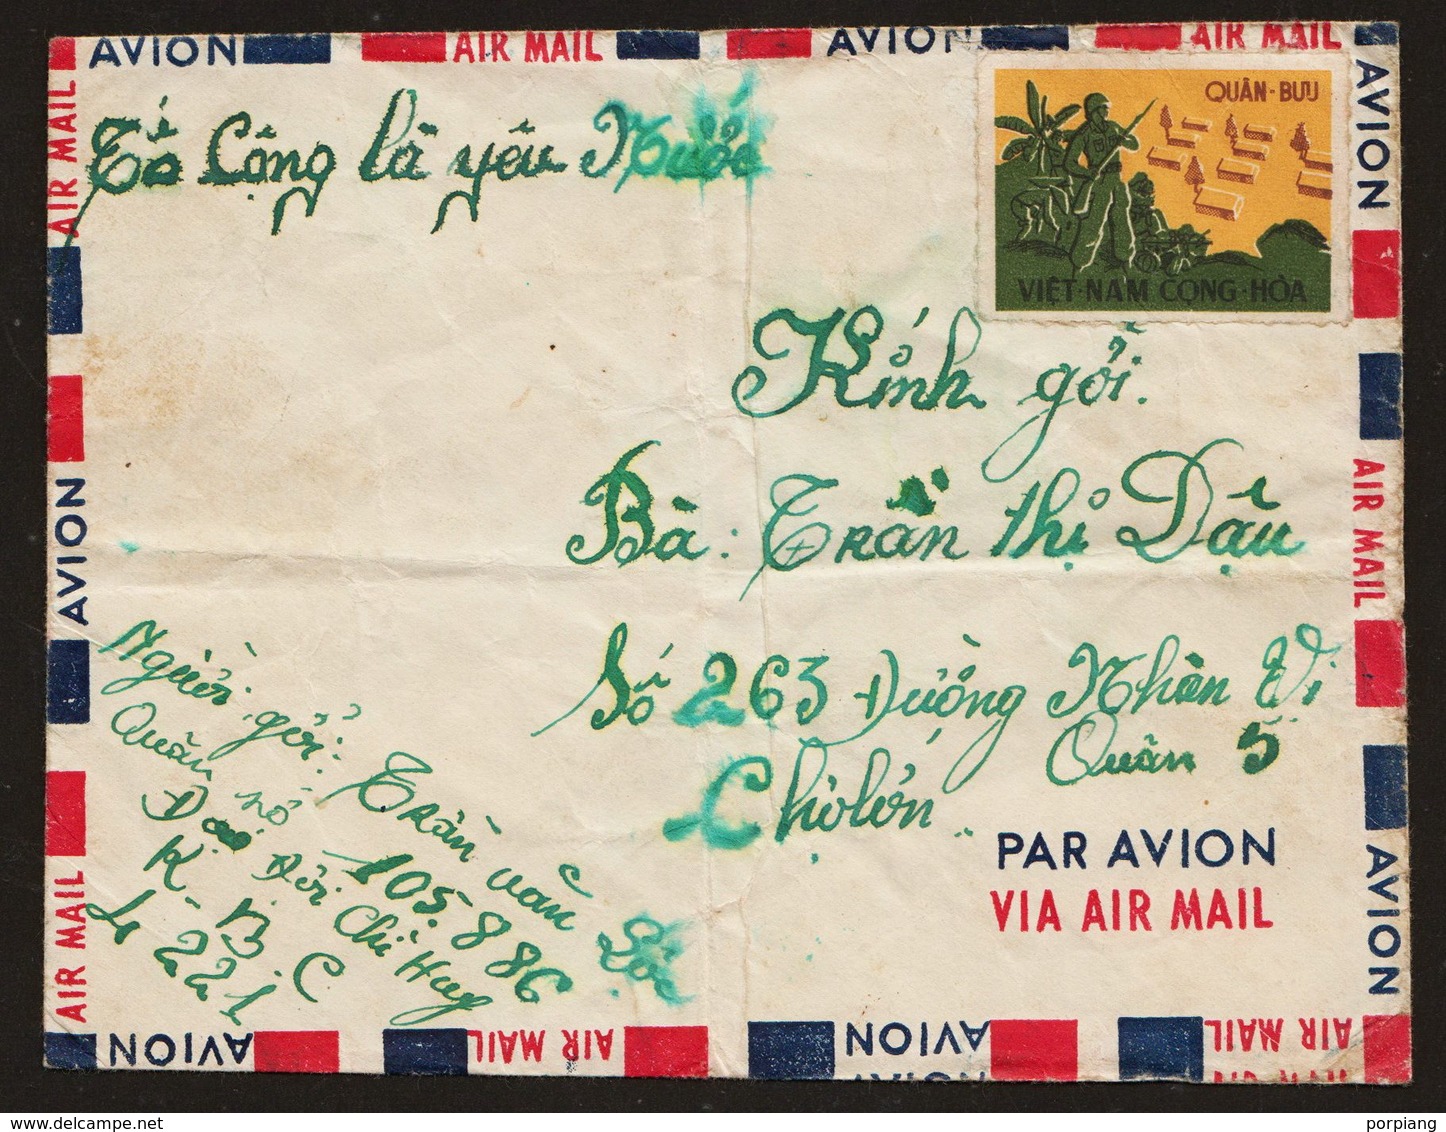 AVION AIR MAIL AVION AIR MAIL
Tố Cộng là yêu Nước
QUÂN-BƯU
VIỆT-NAM CỘNG-HÒA
Kính gởi.
Bà: Trần thị Dậu
Số 263 Đường Nhân Vị
Quân 5
Chợlớn
Người gởi: Trần văn Lộc
Quân số 105.886
Đại Đội Chỉ Huy
K-B.C
4221
PAR AVION
VIA AIR MAIL
AIR MAIL
AVION
AIR MAIL
AVION
AIR MAIL
AVION
AVION AIR MAIL AIR MAIL AVION AIR MAIL
delcampe.net
porpiang